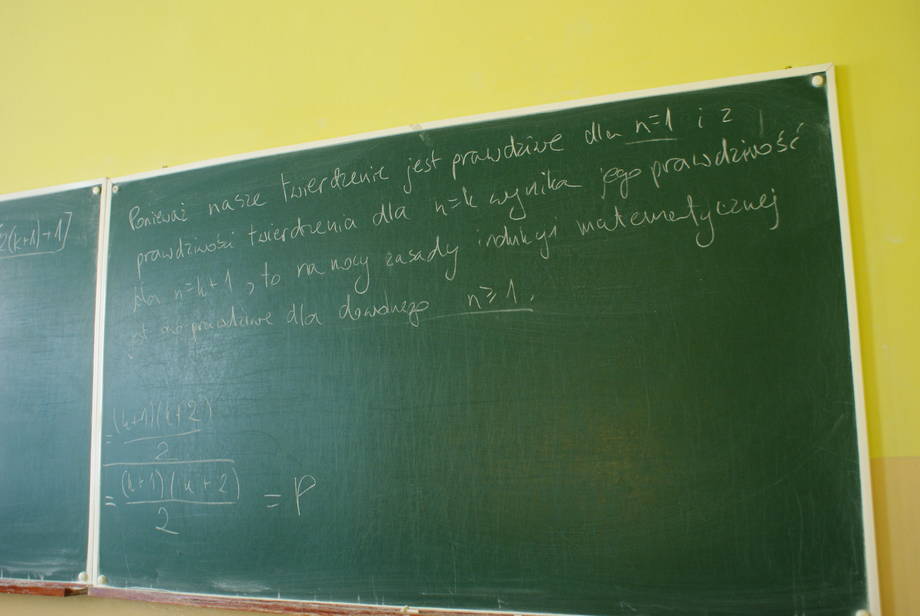 2(k+1)+1]
Ponieważ nasze twierdzenie jest prawdziwe dla n=1 i z
prawdziwości twierdzenia dla n=k wynika jego prawdziwość
dla n=k+1, to na mocy zasady indukcji matematycznej
jest ono prawdziwe dla dowolnego n≥1.
= (k+1)(k+2)
2
= (k+1)(k+2)
2
= P